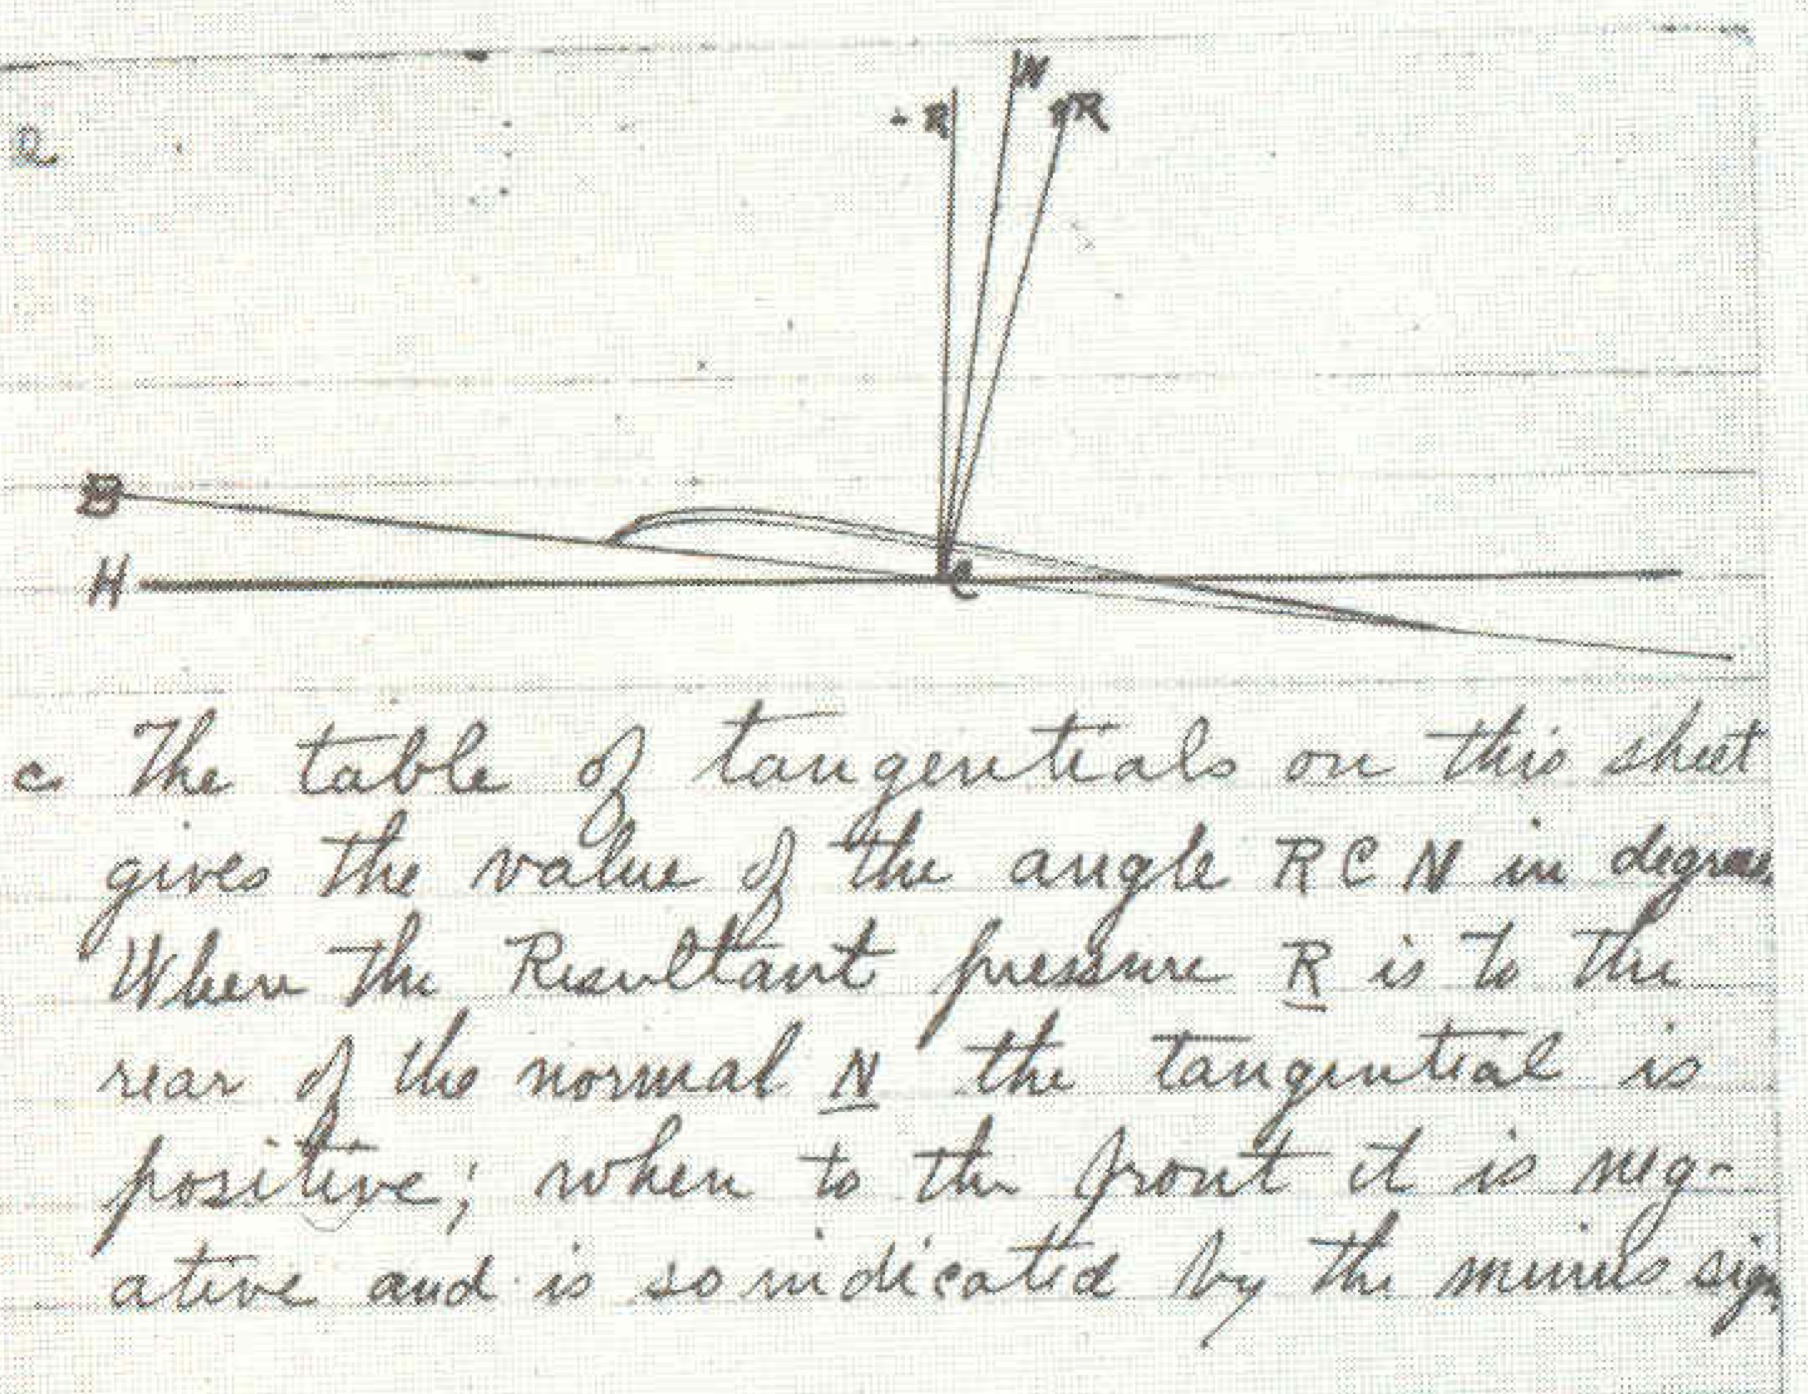 e
N
- R
+R
B
H
C
c The table of tangentials on this sheet
gives the value of the angle R C N in degrees.
When the Resultant pressure R is to the
rear of the normal N the tangential is
positive; when to the front it is neg-
ative and is so indicated by the minus sign